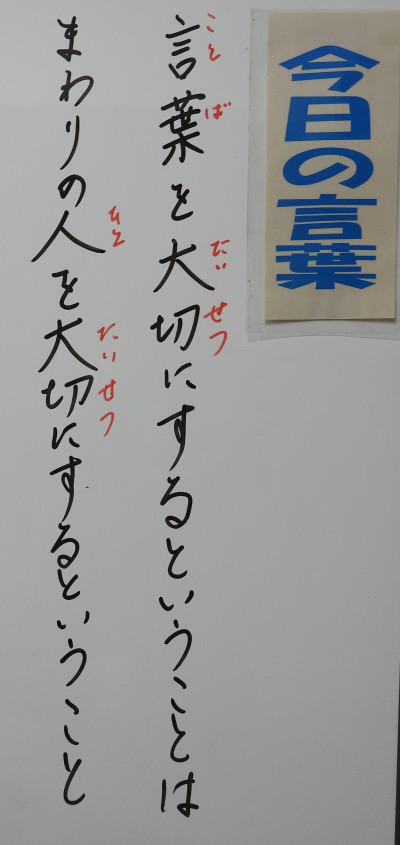 今日の言葉
言葉を大切にするということは
ことば
たいせつ
まわりの人を大切にするということ
ひと
たいせつ